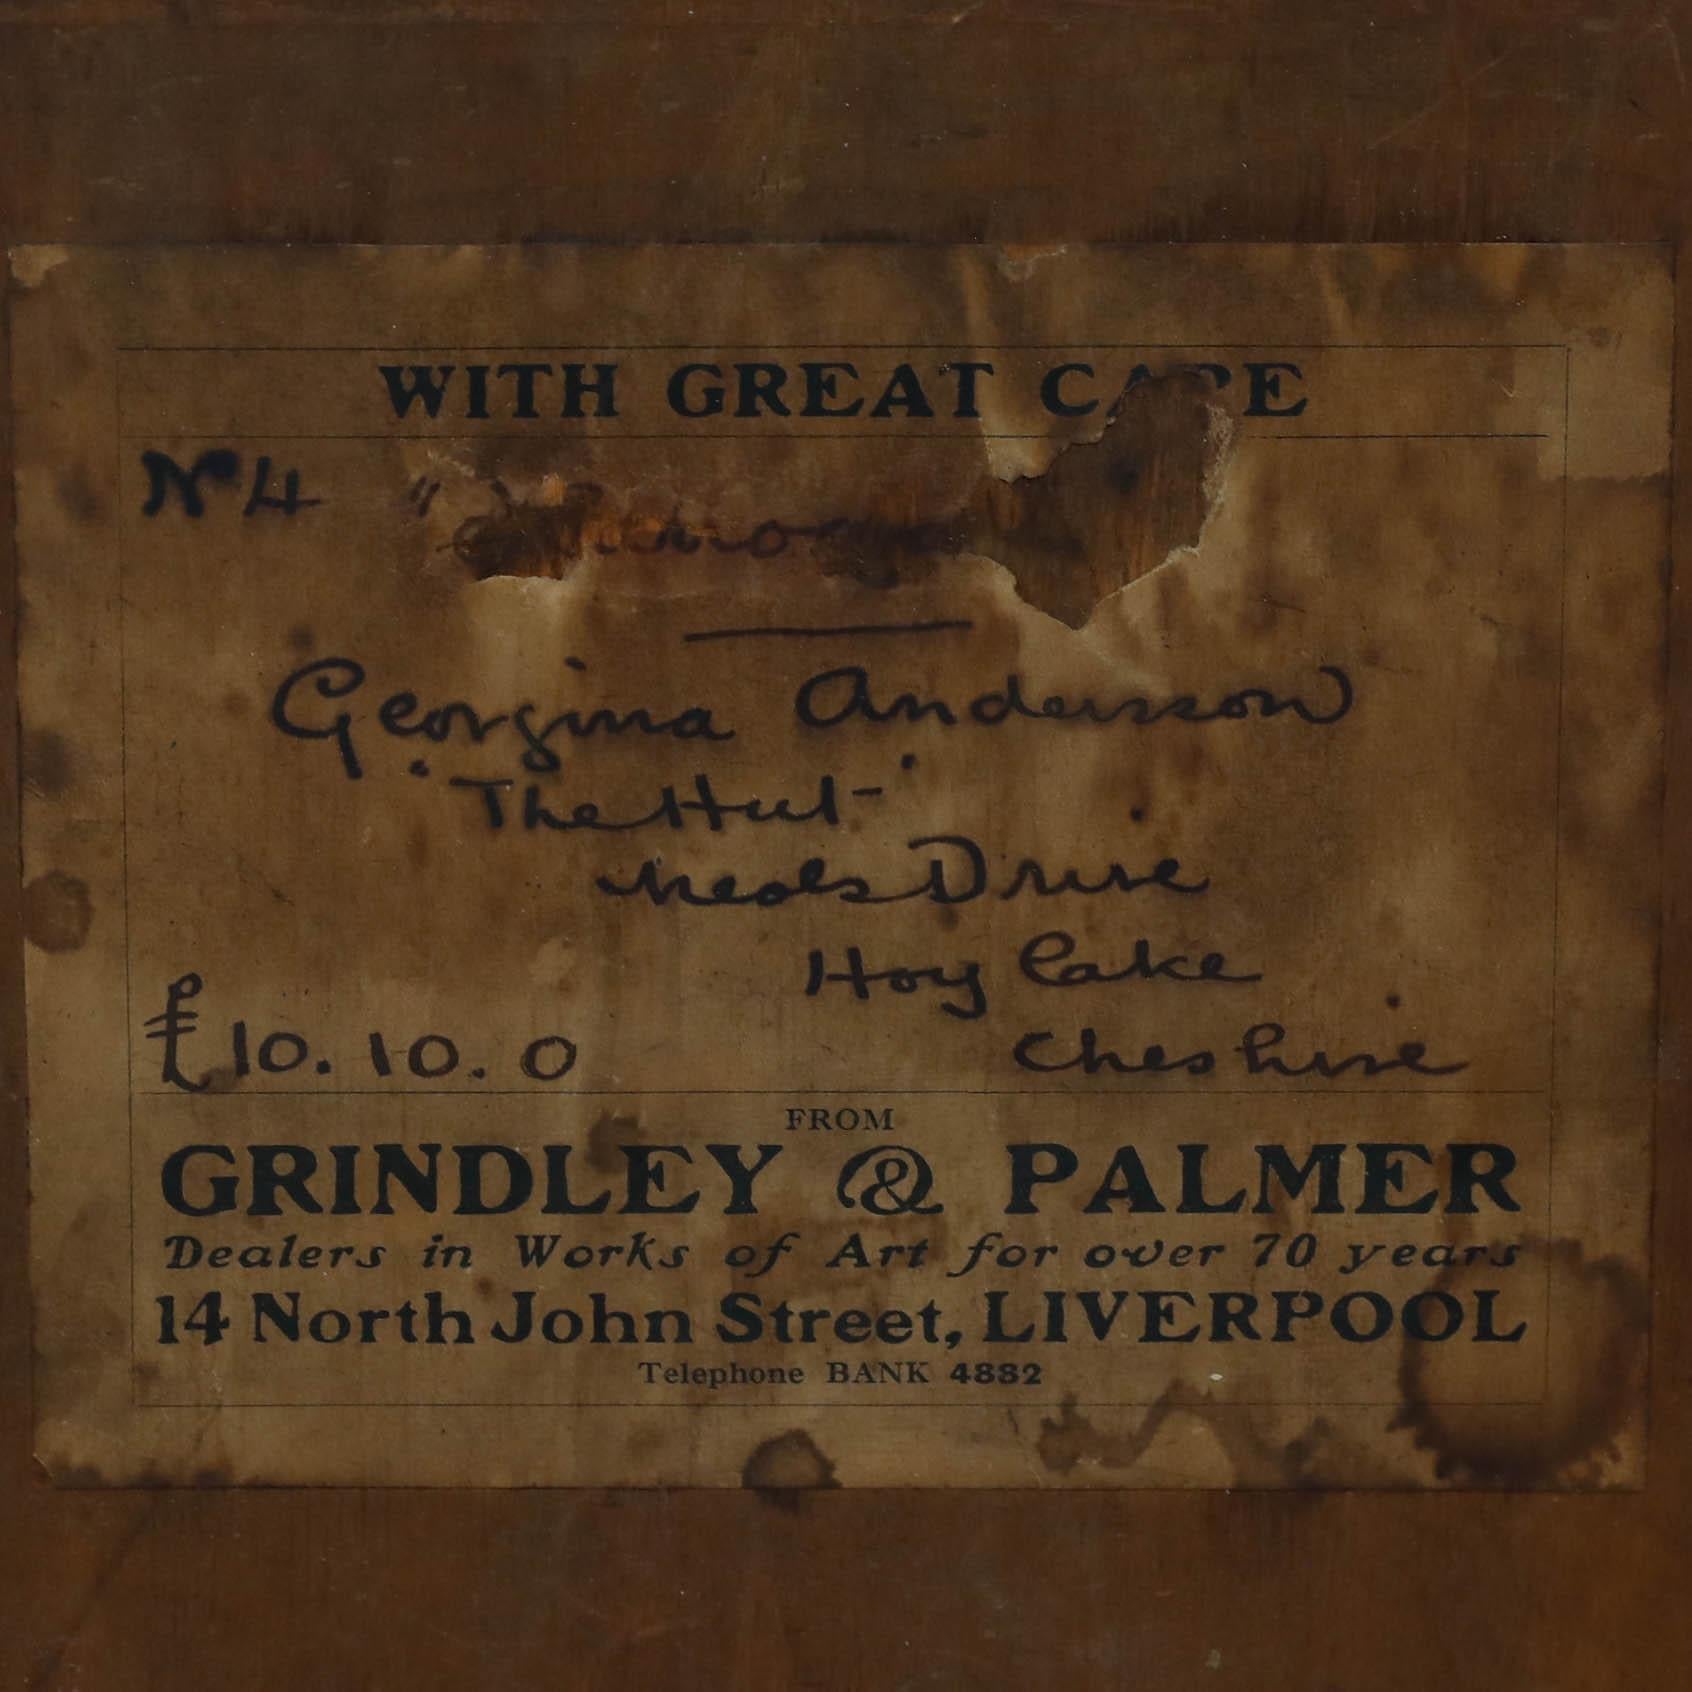 WITH GREAT CARE
No 4 "
Georgina Anderson
"The Hut"
Meols Drive
Hoy Lake
Cheshire
£10.10.0
FROM
GRINDLEY & PALMER
Dealers in Works of Art for over 70 years
14 North John Street, LIVERPOOL
Telephone BANK 4882